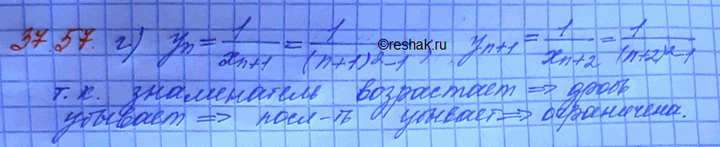 37.57. г) yₙ = 1/xₙ₊₁ = 1/((n+1)²-1), yₙ₊₁ = 1/xₙ₊₂ = 1/((n+2)²-1)
©reshak.ru
т.к. знаменатель возрастает ⇒ дробь
убывает ⇒ посл-ть убывает ⇒ ограничена.